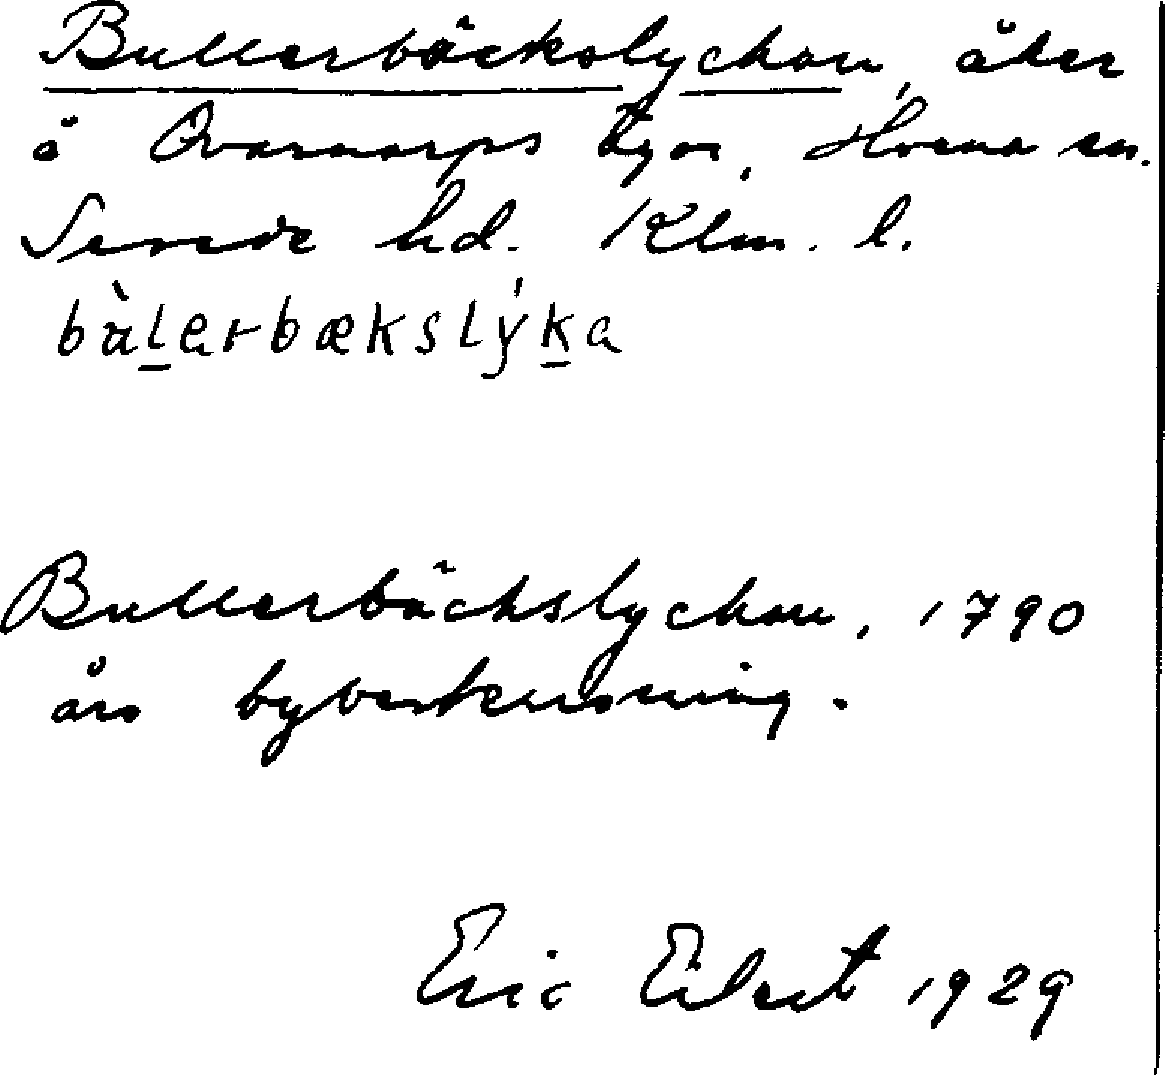 Bullerbäckslyckan, åker
å Qvarnarps ägor, Hvena sn.
Sevede hd. Klm. l.
bàlerbækslýka
Bullerbäckslyckan, 1790
års bybeskrivning.
Eric Elert 1929